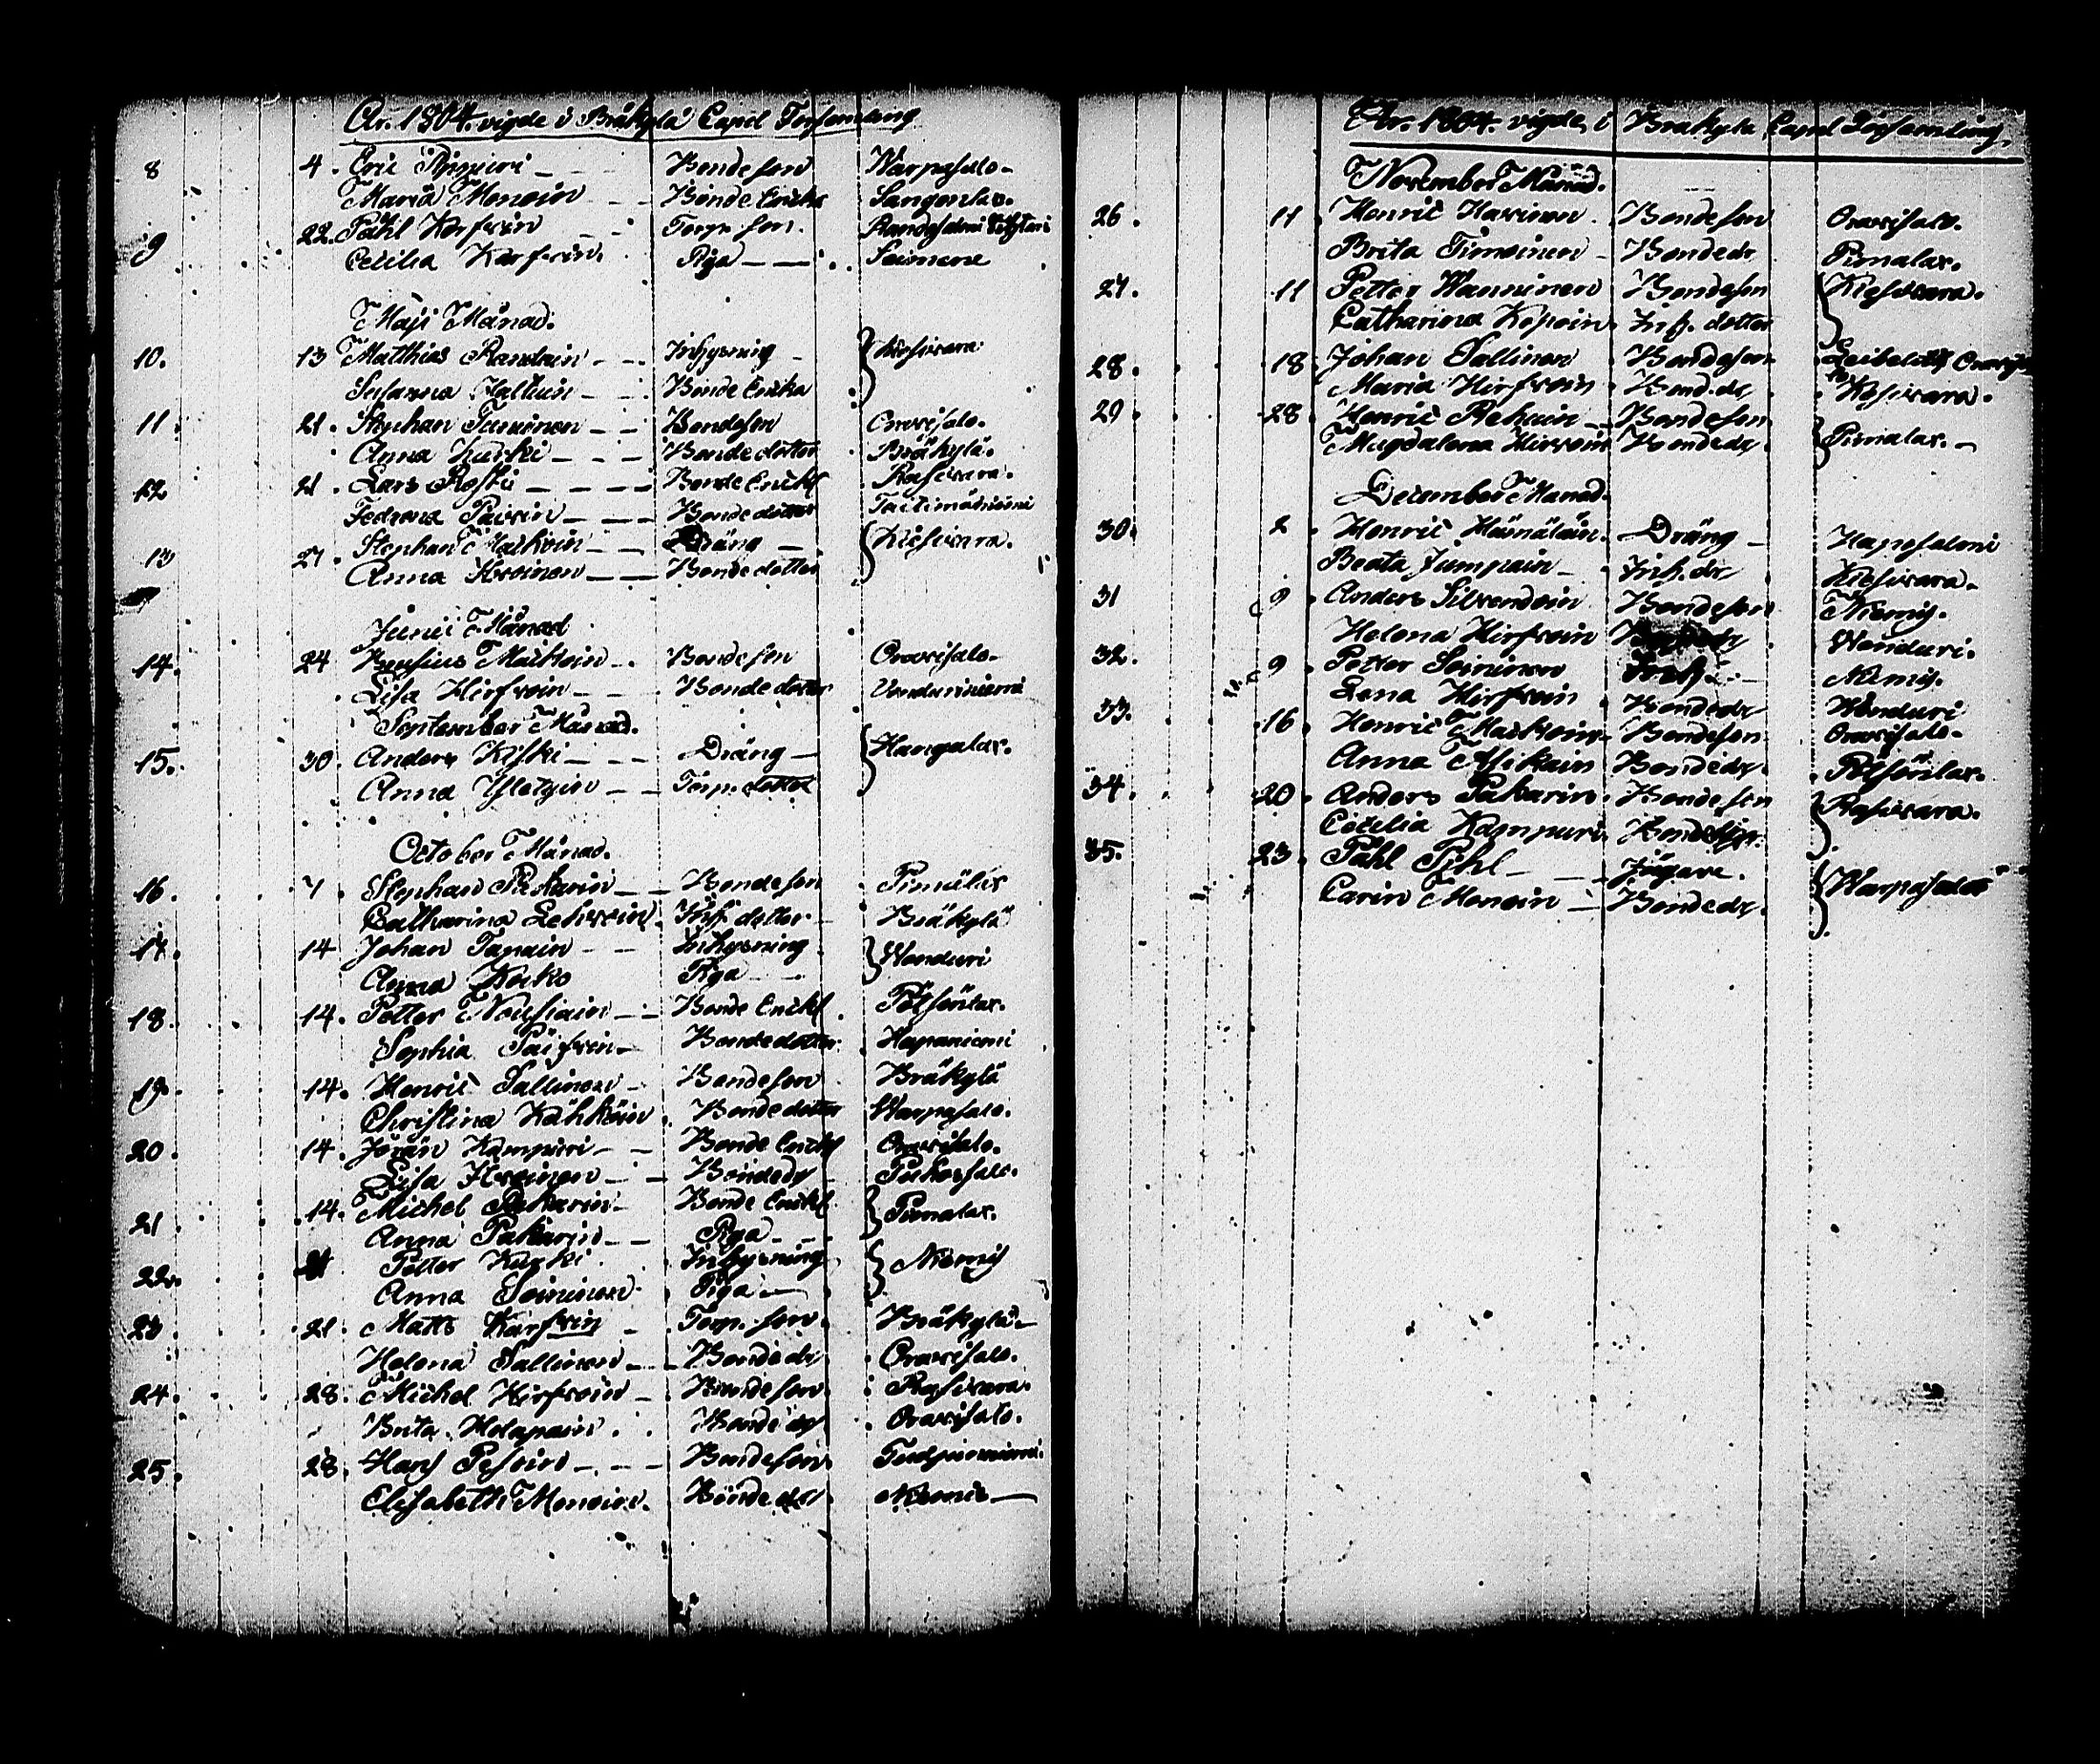 År. 1804. vigde i Bräkylä Capel Församling
8 4. Eric Ripuri - Bondeson Warpasalo.
Maria Monoin - Bonde Enicka Sangenlax.
9 22. Påhl Karfvin - Torp. son. Randasalmi
Cecilia Karfvin. Piga - Seimene
Maji Månad.
10. 13 Matthias Randain - Inhysning - Kiesivara
Susanna Halluin - Bonde Enicka
11. 21. Stephan Turunen - Bondeson Oravisalo.
Anna Kurki - Bonde dotter Bräkylä.
12 21. Lars Roski - Bonde Enckl Rasivara.
Fedrona Pairin - Bonde dotter
13 27. Stephan Matkoin - Dräng - Kiesivara.
Anna Hroinen - Bonde dotter
Junii Månad
14. 24 Brusius Matkoin - Bondeson Oravisalo.
Lisa Hirfvoin - Bonde dotter Vonduriniemi
September Månad.
15. 30. Anders Kiski - Dräng - Hangalax.
Anna - Torp. dotter
October Månad.
16. 7. Stephan Pakarin - Bondeson Pimälax
Catharina Lehvoin. Inh. dotter - Bräkylä
17. 14 Johan Tapain - Inhysning Wonduri
Anna Koko Piga -
18. 14. Petter Nousiain - Bonde Enckl. Pötsönlax.
Sophia Päifven - Bondedotter. Hapaniemi
19. 14. Henric Sallinen - Bondeson Bräkylä
Christina Kähköin. Bonde dotter Warpasalo.
20. 14. Jörän Kampuri - Bonde Enckl Oravisalo.
Lisa Hroinen - Bondedr Puhossalo.
21. 14. Michel Pakarin - Bonde Enckl. Pimalax.
Anna Pakarin - Piga -
22. 21 Petter Kurki Inhysning Niemis
Anna Soininen Piga -
23. 21. Matts Karfvin - Torp. son. Bräkylä
Helena Sallinen - Bonde dr Oravisalo.
24. 28. Michel Hirfvoin - Bondeson. Rasivara.
Brita Holapain. Bonde dr Oravisalo.
25. 28. Hans Pesoin - Bondeson
Elisabeth Monoin. Bonde dr. Niemis -
År. 1804. vigde i Bräkylä Capel Församling.
November Månad.
26. 11. Henric Havinen. Bondeson Oravisalo.
Brita Timoinen - Bondedr Pimalax.
27. 11 Petter Wanninen Bondeson Kiesivara.
Catharina Kopoin. Inh. dotter
28. 18. Johan Sallinen Bondeson Leibelax
Maria Hirfvoin Bond.dr. Kesivara.
29. 28. Henric Rehuin - Bondeson Pimalax. -
Magdalena Hirvoin Bondedr.
December Månad.
30. 2. Henric Hämäläin. Dräng - Hapesalmi
Beata Jumpain - Inh.dr Kiesivara.
31 9. Anders Silvendoin Bondeson Niemis.
Helena Hirfvoin Wonduri.
32. 9. Petter Soininen Inh. - Nimis.
Lena Hirfvoin Bondedr Wonduri
33. 16. Henric Matkoin - Bondeson. Oravisalo.
Anna Asikain Bondedr. Pötsönlax.
34. 20. Anders Pakarin. Bondeson Rasivara.
Cecilia Kampuri.
35. 23. Påhl Pihl - Jägare. Warpasalo
Carin Monoin - Bondedr.